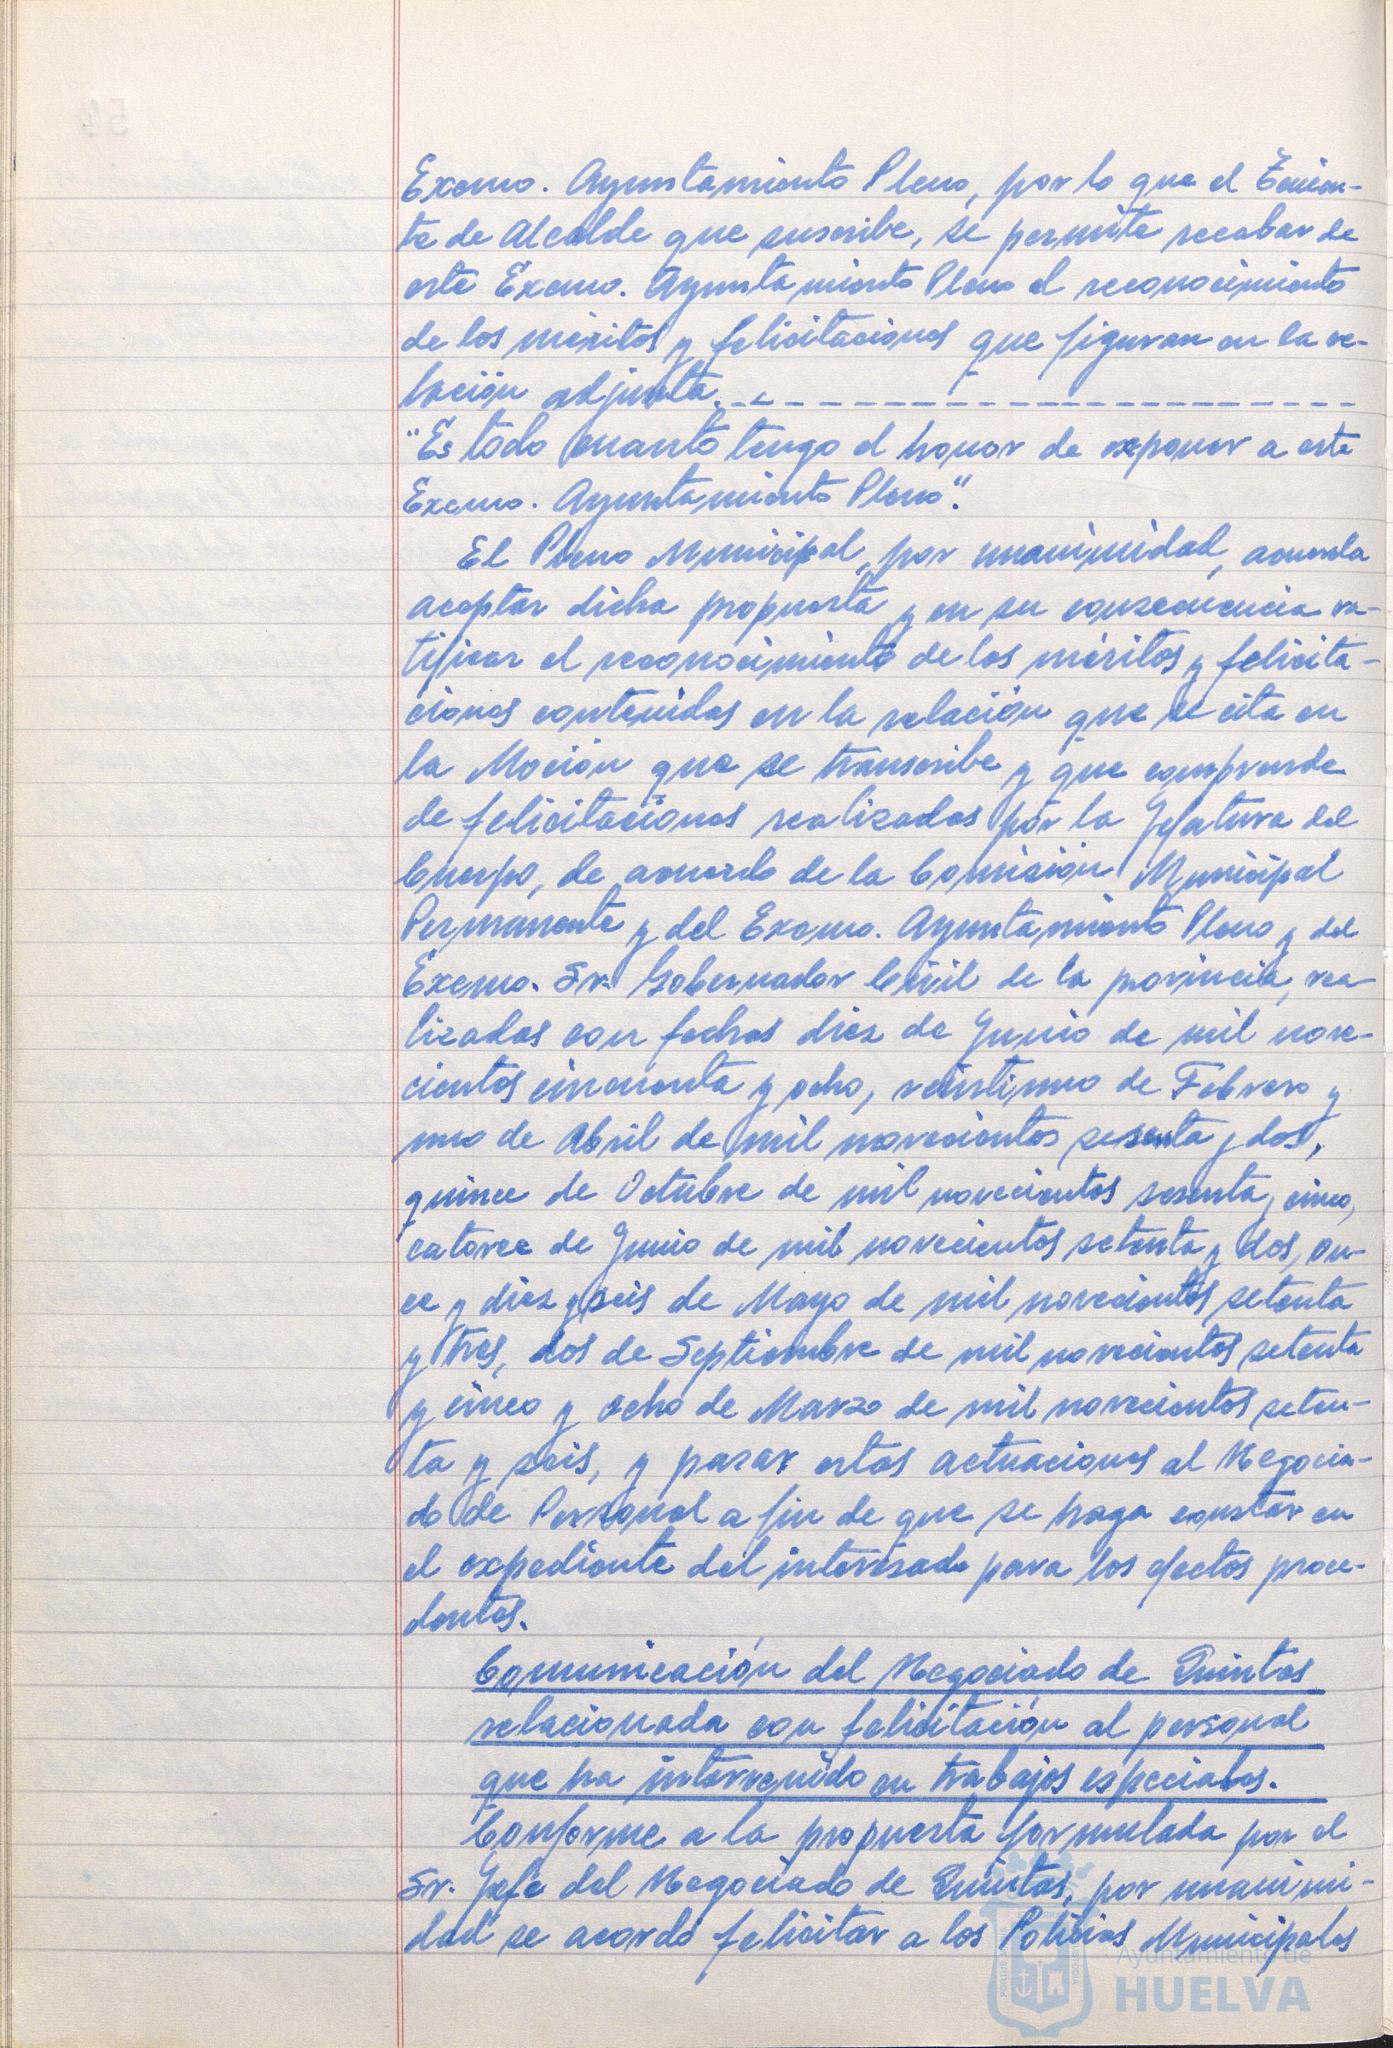 Excmo. Ayuntamiento Pleno, por lo que el Tenien-
te de Alcalde que suscribe, se permite recabar de
este Excmo. Ayuntamiento Pleno el reconocimiento
de los méritos y felicitaciones que figuran en la re-
lación adjunta.
"Es todo cuanto tengo el honor de exponer a este
Excmo. Ayuntamiento Pleno".
El Pleno Municipal, por unanimidad, acuerda
aceptar dicha propuesta y en su consecuencia ra-
tificar el reconocimiento de los méritos y felicita-
ciones contenidas en la relación que se cita en
la Moción que se transcribe y que comprende
de felicitaciones realizadas por la Jefatura del
Cuerpo, de acuerdo de la Comisión Municipal
Permanente y del Excmo. Ayuntamiento Pleno y del
Excmo. Sr. Gobernador Civil de la provincia, rea
lizadas con fechas diez de Junio de mil nove-
cientos cincuenta y ocho, veintiuno de Febrero y
uno de Abril de mil novecientos sesenta y dos,
quince de Octubre de mil novecientos sesenta y cinco,
catorce de Junio de mil novecientos setenta y dos, on-
ce y diez y seis de Mayo de mil novecientos setenta
y tres, dos de Septiembre de mil novecientos setenta
y cinco y ocho de Marzo de mil novecientos seten-
ta y seis, y pasar estas actuaciones al Negocia-
do de Personal a fin de que se haga constar en
el expediente del interesado para los efectos proce-
dentes.
Comunicación del Negociado de Quintas
relacionada con felicitación al personal
que ha intervenido en trabajos especiales.
Conforme a la propuesta formulada por el
Sr. Jefe del Negociado de Quintas, por unanimi-
dad se acordó felicitar a los Policias Municipales
Ayuntamiento de
HUELVA